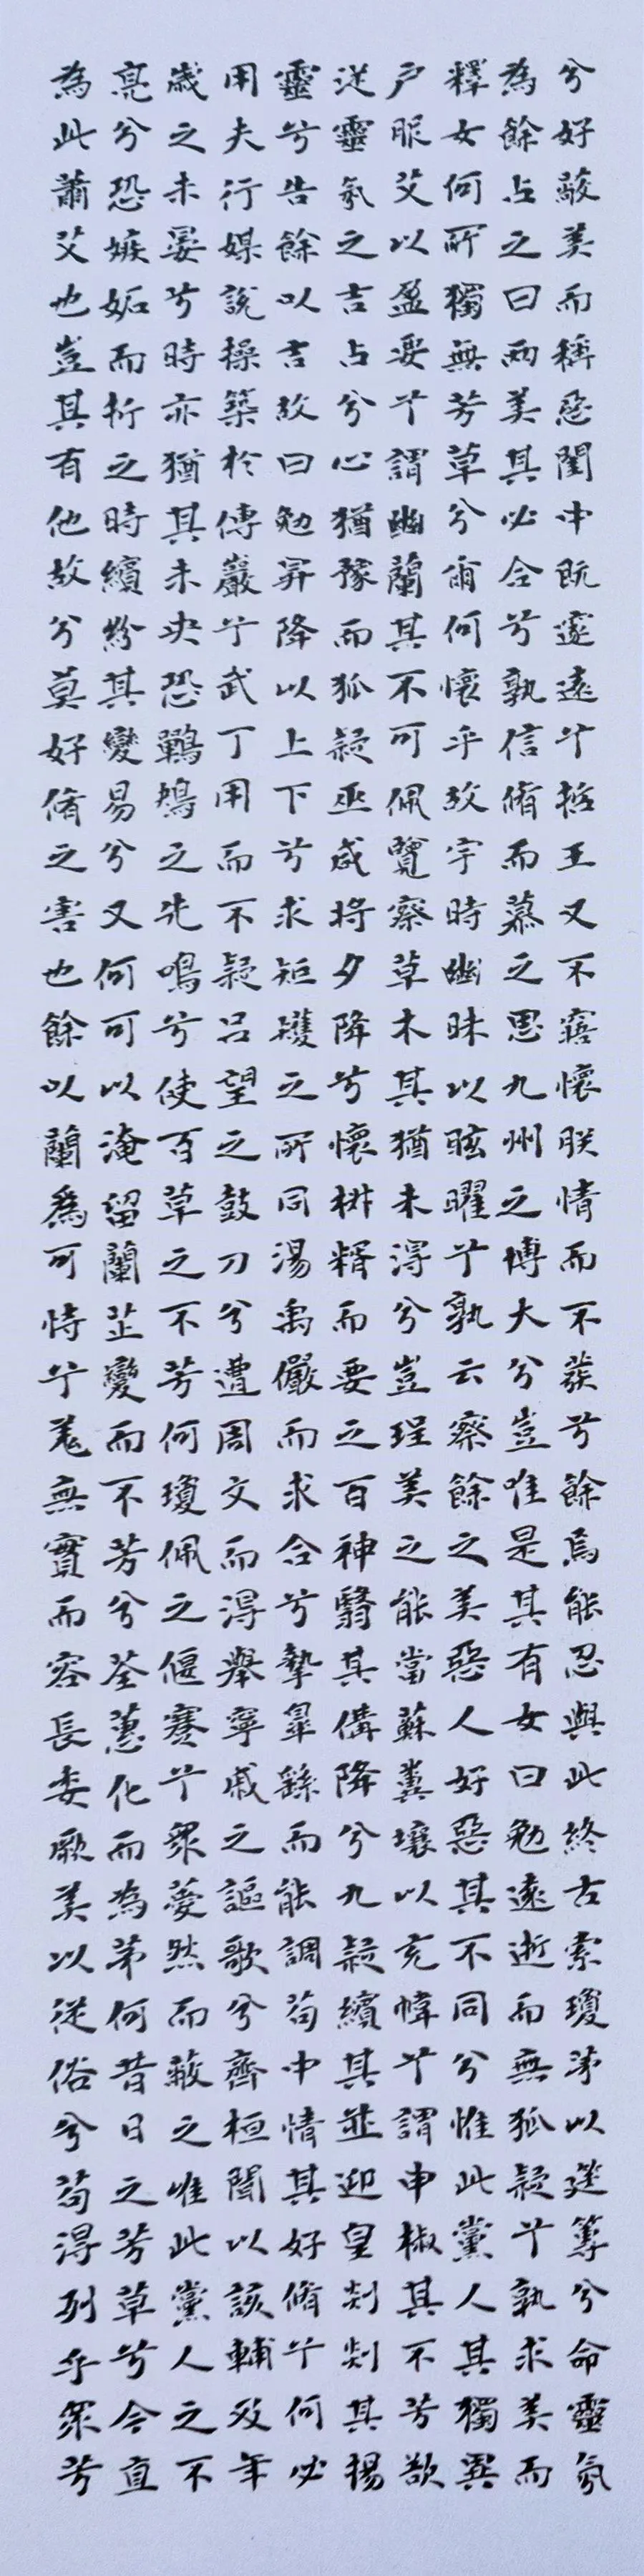 兮好蔽美而稱惡閨中既邃遠兮哲王又不寤懷朕情而不發兮餘焉能忍與此終古索瓊茅以筳篿兮命靈氛
為餘占之曰兩美其必合兮孰信脩而慕之思九州之博大兮豈唯是其有女曰勉遠逝而無狐疑兮孰求美而
釋女何所獨無芳草兮爾何懷乎故宇時幽昧以眩曜兮孰云察餘之美惡人好惡其不同兮惟此黨人其獨異
戶服艾以盈要兮謂幽蘭其不可佩覽察草木其猶未得兮豈珵美之能當蘇糞壤以充幃兮謂申椒其不芳欲
從靈氛之吉占兮心猶豫而狐疑巫咸將夕降兮懷椒糈而要之百神翳其備降兮九疑繽其並迎皇剡剡其揚
靈兮告餘以吉故曰勉昇降以上下兮求矩矱之所同湯禹儼而求合兮摯皋繇而能調苟中情其好脩兮何必
用夫行媒說操築於傅巖兮武丁用而不疑呂望之鼓刀兮遭周文而得舉寧戚之謳歌兮齊桓聞以該輔及年
歲之未晏兮時亦猶其未央恐鷤鴂之先鳴兮使百草之不芳何瓊佩之偃蹇兮眾薆然而蔽之唯此黨人之不
亮兮恐嫉妬而折之時繽紛其變易兮又何可以淹留蘭芷變而不芳兮荃蕙化而為茅何昔日之芳草兮今直
為此蕭艾也豈其有他故兮莫好脩之害也餘以蘭為可恃兮羌無實而容長委厥美以從俗兮苟得列乎眾芳